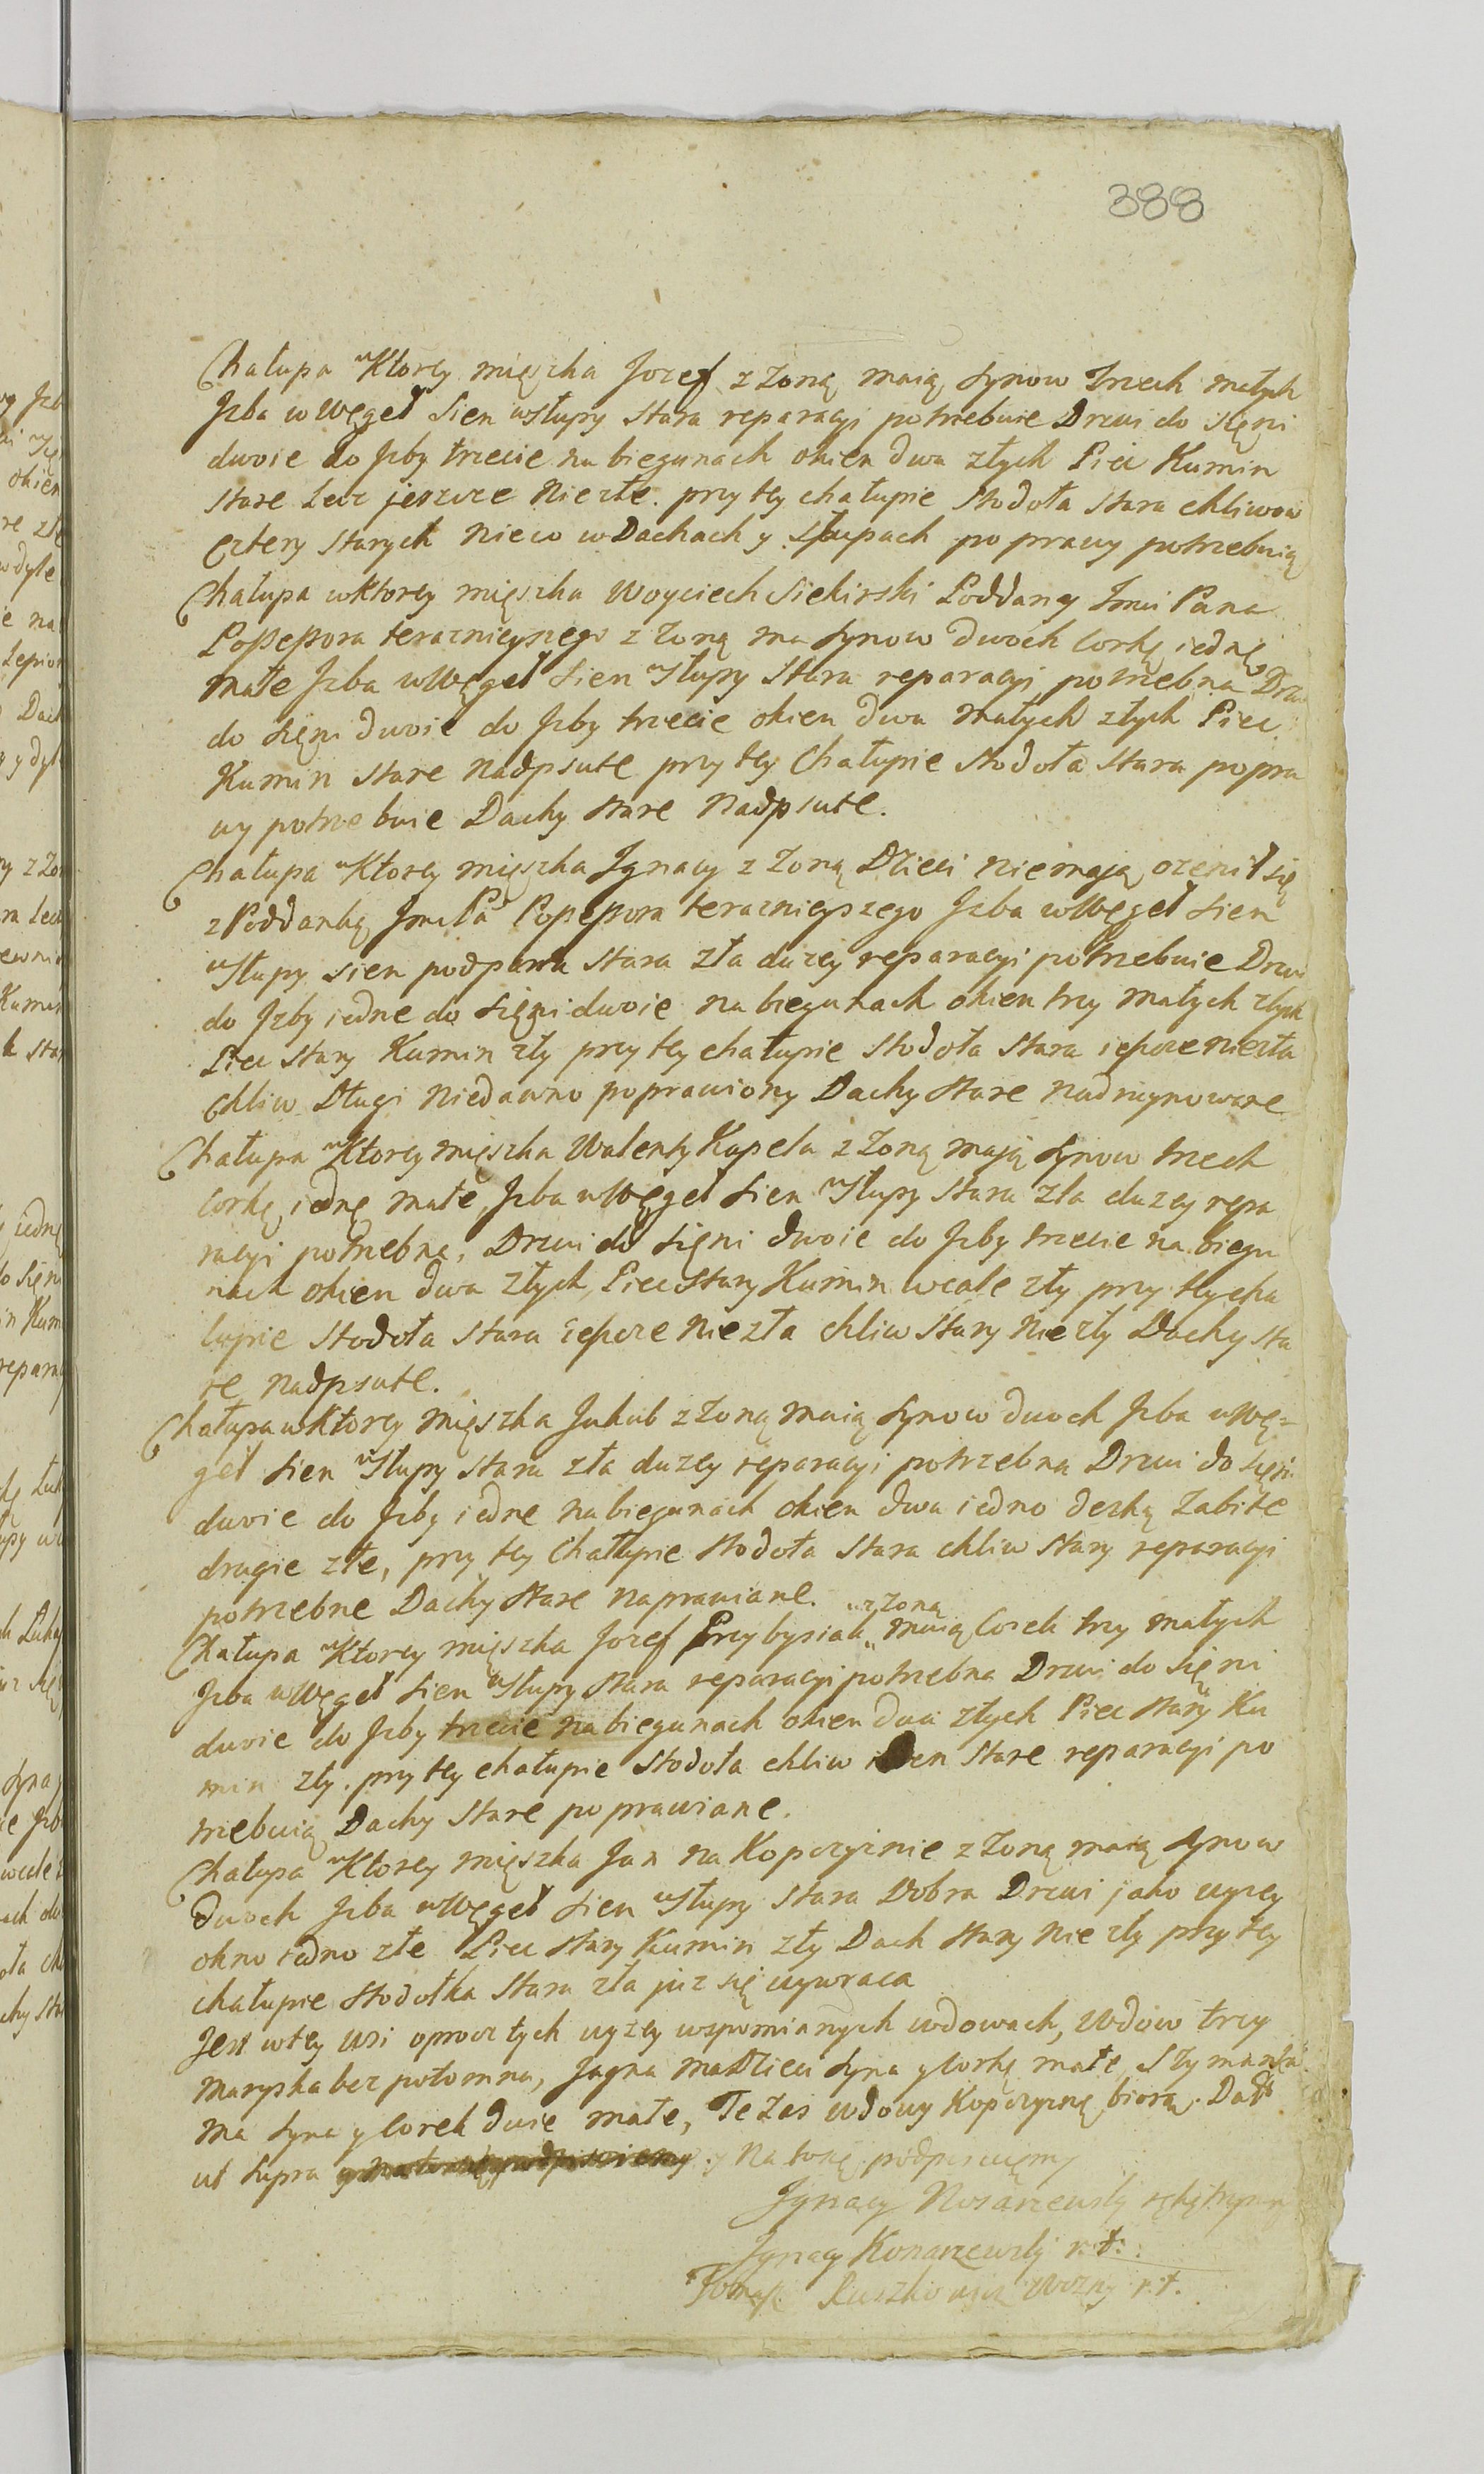 388
Chałupa w Ktorey mięszka Jozef z Zoną maią Synow trzech małych
Jzba w Węgeł Sien w Słupy stara reparacyi potrzebuie Drzwi do Sięni
dwoie do Jzby trzecie na biegunach okien dwa złych Piec Kumin
stare Lecz jeszcze niezłe. przy tey chałupie stodoła stara chliwow
cztery starych nieco w Dachach y Słupach poprawy potrzebuią
Chałupa w Ktorey mięszka Woyciech Siekirski Poddany Jmci Pana
Possessora teraznieyszego z Zoną ma Synow dwoch Corkę iednę
małe Jzba w Węgeł Sien w Słupy Stara reparacyi potrzebna Drzwi
do Sięni dwoie do Jzby trzecie okien dwa małych złych Piec
Kumin stare nadpsute przy tey Chałupie stodoła Stara popra
wy potrzebuie Dachy stare nadpsute.
Chałupa w Ktorey mięszka Jgnacy z Zoną Dzieci niemają ozenił się
z Poddanką Jmci Pa Possessora teraznieyszego Jzba w Węgeł Sien
w Słupy sien podparta stara zła duzey reparacyi potrzebuie Drzwi
do Jzby iedne do Sięni dwoie na biegunach okien trzy małych złych
Piec stary Kumin zły przy tey chałupie stodoła stara ieszcze niezła
Chliw Długi niedawno poprawiony Dachy stare nadruynowane
Chałupa w Ktorey mięszka Walenty Kapela z Zoną mają Synow trzech
Corkę iednę małe, Jzba w Węgeł Sien w Słupy stara zła duzey repa
racyi potrzebna, Drzwi do Sięni dwoie do Jzby trzecie na biegu
nach okien dwa złych, Piec stary Kumin wcale zły przy tey cha
łupie stodoła stara ieszcze niezła chliw stary niezły Dachy sta
re nadpsute.
Chałupa w Ktorey mięszka Jakub z Zoną maią Synow dwoch Jzba w Wę=
geł Sien w Słupy stara zła duzey reparacyi potrzebna Drzwi do Sięni
dwoie do Jzby iedne na biegunach okien dwa iedno deską Zabite
drugie złe, przy tey Chałupie stodoła stara chliw stary reparacyi
potrzebne Dachy stare naprawiane.
Chałupa w Ktorey mięszka Jozef Przybysiak z Zoną maią Corek trzy małych
Jzba w Węgeł Sien w Słupy stara reparacyi potrzebna Drzwi do Sięni
dwoie do Jzby trzecie na biegunach okien dwa złych Piec stary Ku
min zły. przy tey chałupie Stodoła chliw ieden stare reparacyi po
trzebuią Dachy stare poprawiane.
Chałupa w Ktorey mięszka Jan na Kopczyźnie z Zoną maią Synow
dwoch Jzba w Węgeł Sien w Słupy stara Dobra Drzwi jako wyzey
okno iedno złe Piec stary kumin zły Dach stary niezły przy tey
chałupie stodołka stara zła juz się wywraca
Jest w tey wsi oprocz tych wyzey wspomianych wdowach, Wdow trzy
Maryska bez potomna, Jagna ma Dzieci Syna y Corkę małe, Szymanka
ma Syna y Corek dwie małe, Te Zas wdowy Kopczyznę biorą. Datt
ut supra y na to się podpisuiemy. y Na tosię podpisuięmy
Jgnacy Nosarzewsky ręką swą
Jgnacy Konarzewsky r. t.
Tomasz Ruszkowski Wozny r. t.